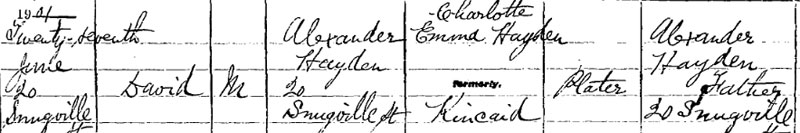 1901
Twenty-seventh
June
20
Snugville
St
David
M
Alexander
Hayden
20
Snugville St
Charlotte
Emma Hayden
formerly
Kincaid
Plater
Alexander
Hayden
Father
20 Snugville